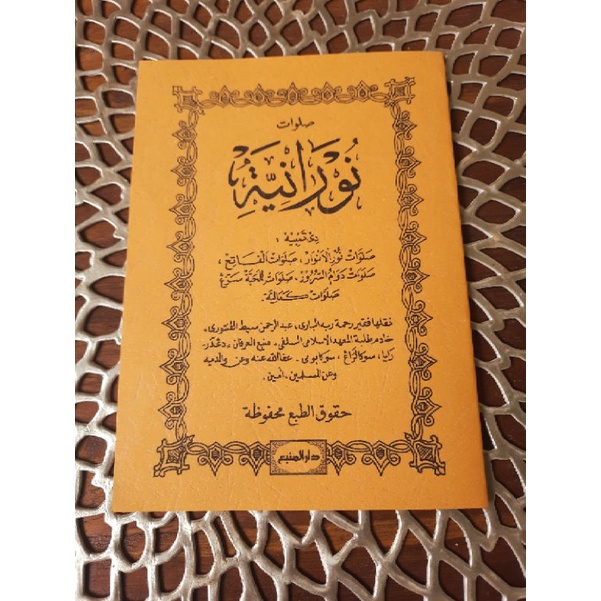 صلوات
نُوْرَانِيَّةِ
صلوات نُوْر الانوار، صلوات الفاتح،
صلوات دوام السرور، صلوات للمحبة سرڠ
صلوات كمالية.
نقلها فقير رحمة ربه الباري، عبد الرحمن سبط
خادم طلبة المعهد الاسلامي السلفي. منبع العرفان،
سوكابومي. عفا الله عنه وعن والديه
وعن المسلمين. آمين.
حقوق الطبع محفوظة
دار المنبع